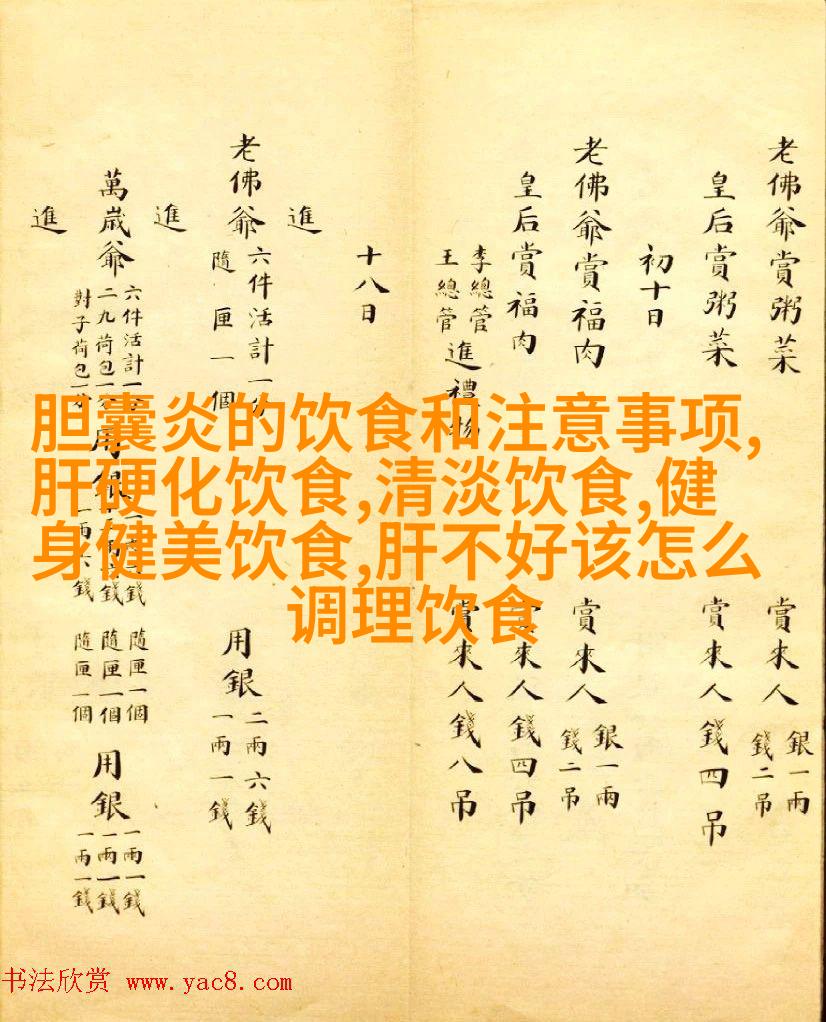 老佛爺賞粥菜 賞來人 銀一兩 錢二吊
皇后賞粥菜 賞來人錢四吊
初十日
老佛爺賞福肉 賞來人 銀一兩 錢二吊
皇后賞福肉 賞來人錢四吊
李總管
王總管
進禮物 賞來人錢八吊
十八日
進
老佛爺 六件活計一分
隨匣一個
用銀 二兩六錢
一兩一錢
進
萬歲爺 六件活計一
二九荷包一
對子荷包一分
用銀
隨匣一個
隨匣一個
隨匣一個
用銀 一兩一錢
一兩一錢
一兩一錢
進
胆囊炎的饮食和注意事项,
肝硬化饮食,清淡饮食,健
身健美饮食,肝不好该怎么
调理饮食
书法欣赏 www.yac8.com